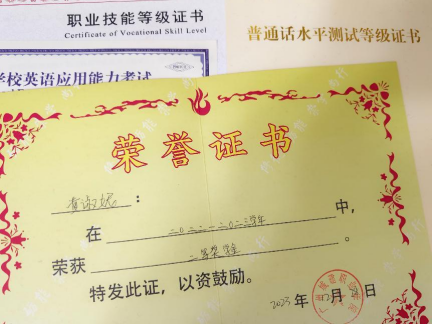 职业技能等级证书
Certificate of Vocational Skill Level
普通话水平测试等级证书
学校英语应用能力考试
荣誉证书
：
在 二〇二二-二〇二三学年 中，
荣获 二等奖学金 。
特发此证，以资鼓励。
2023年12月 日